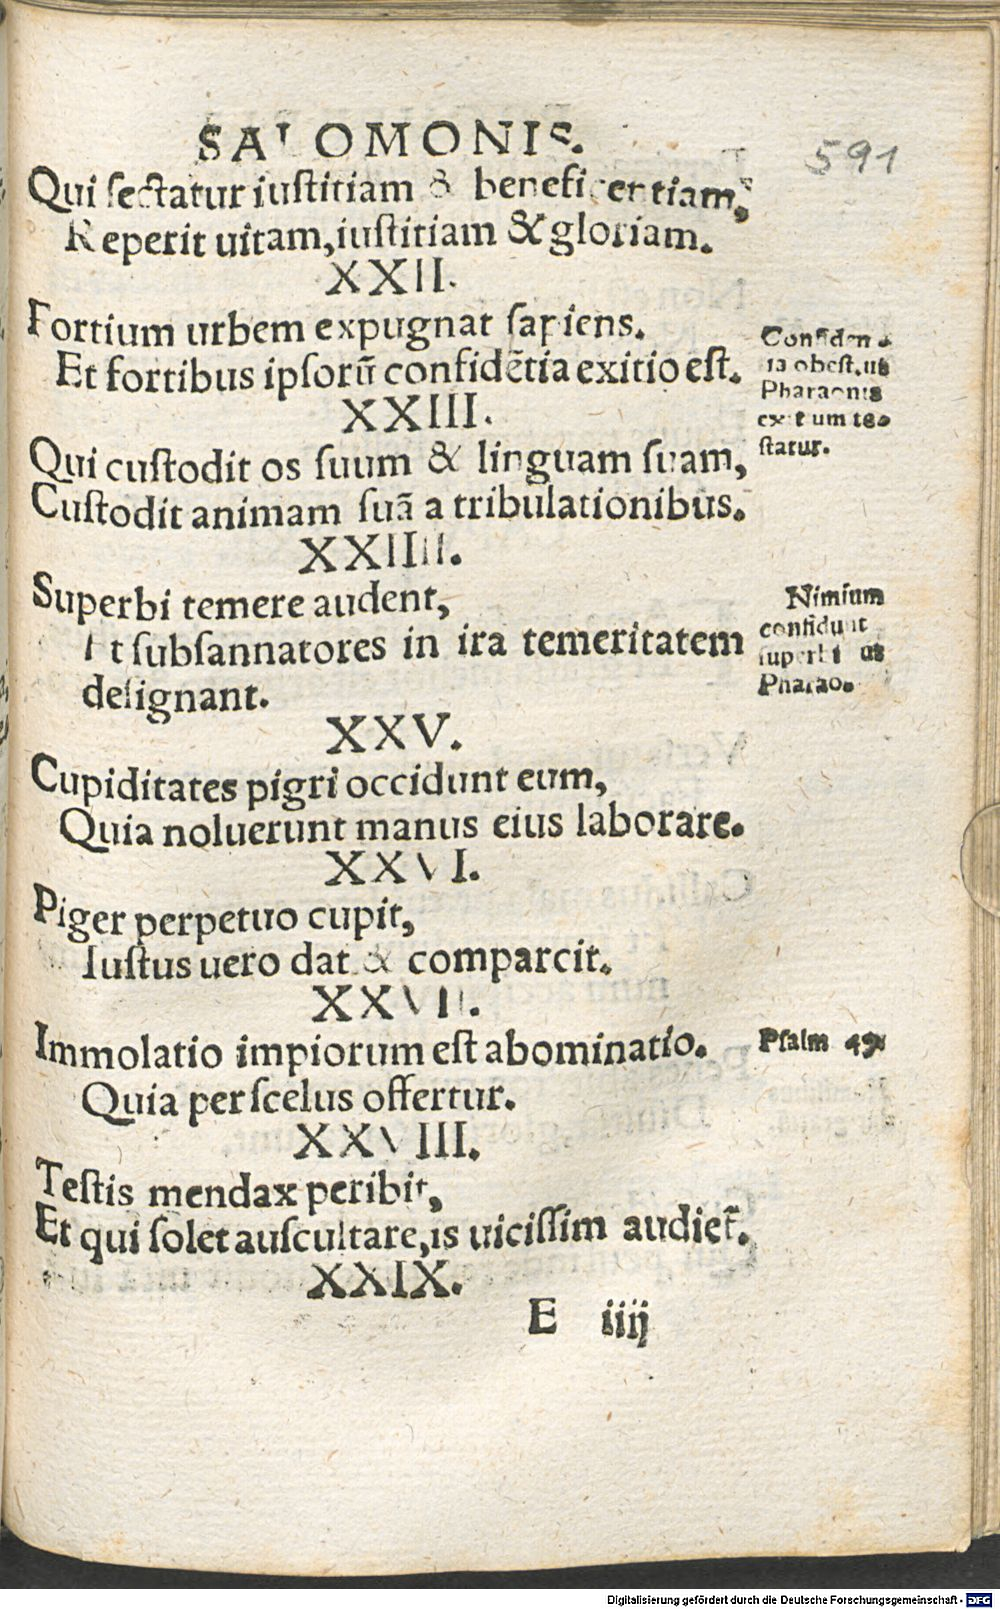 SALOMONIS.
591
Qui sectatur iustitiam & beneficentiam,
Reperit uitam, iustitiam & gloriam.
XXII.
Fortium urbem expugnat sapiens.
Et fortibus ipsorũ confidẽtia exitio est.
Confiden
tia obest, ut
Pharaonis
exitium te-
statur.
XXIII.
Qui custodit os suum & linguam suam,
Custodit animam suã a tribulationibus.
XXIIII.
Superbi temere audent,
Et subsannatores in ira temeritatem
designant.
Nimium
confidunt
superbi ut
Pharao.
XXV.
Cupiditates pigri occidunt eum,
Quia noluerunt manus eius laborare.
XXVI.
Piger perpetuo cupit,
Iustus uero dat & comparcit.
XXVII.
Immolatio impiorum est abominatio.
Psalm 49.
Quia per scelus offertur.
XXVIII.
Testis mendax peribit,
Et qui solet auscultare, is uicissim audiet̃.
XXIX.
E iiij
Digitalisierung gefördert durch die Deutsche Forschungsgemeinschaft - DFG